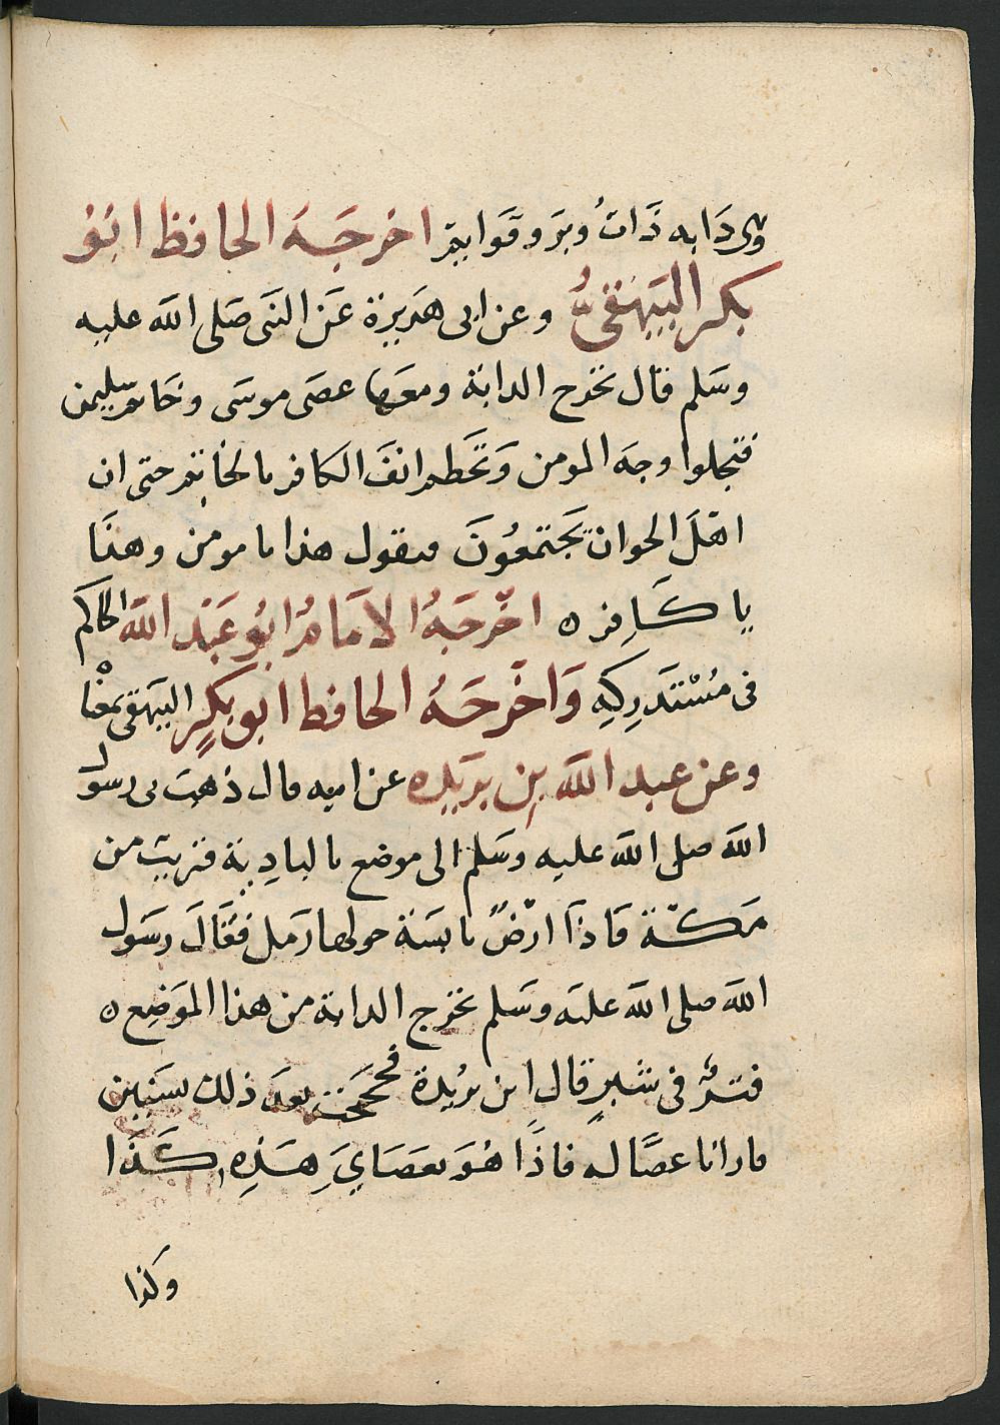 وهى دَابه ذَاتُ وبَر وقَوايم اخرجَهَ الحافظ ابُو
بكر البَيهَقىُّ وعن ابى هَريرة عَن النَبى صَلى الله عليه
وسَلم قال تخرج الدابة ومعَها عصَى موسَى وخَاتم سليمن
فتجلوا وجهَ المومن وَتَخَطم انفَ الكافر بالخاتم حتى ان
اهْلَ الخوان يَجَتمعُونَ فيقول هذا يا مومن وهذَا
يا كَافِر ه اخْرجَهُ الامَامُ ابُو عَبَد الله الحاكم
فى مُسْتَدركِهِ وَاخْرجَهُ الحافظ ابو بكرٍ البَيهَقى بمعْناه
وعن عبد الله بن بريده عن ابيه قال ذهبَ بى رسول
الله صلى الله عليه وسَلم الى موضع بالبادِية قريبٌ من
مَكّة فَاذَا ارْضٌ يابسَة حولها رَمل فقَالَ رسَول
الله صلى الله عليه وسَلم تخرج الدابة من هذا الموَضِع ه
فترٌ فى شبرٍ قال ابن بريُدة فحججَت بعدَ ذلك بسَنين
فارانا عصًا له فاذَا هُوَ بعَصَايَ هَذِه كَذَا
وكذا